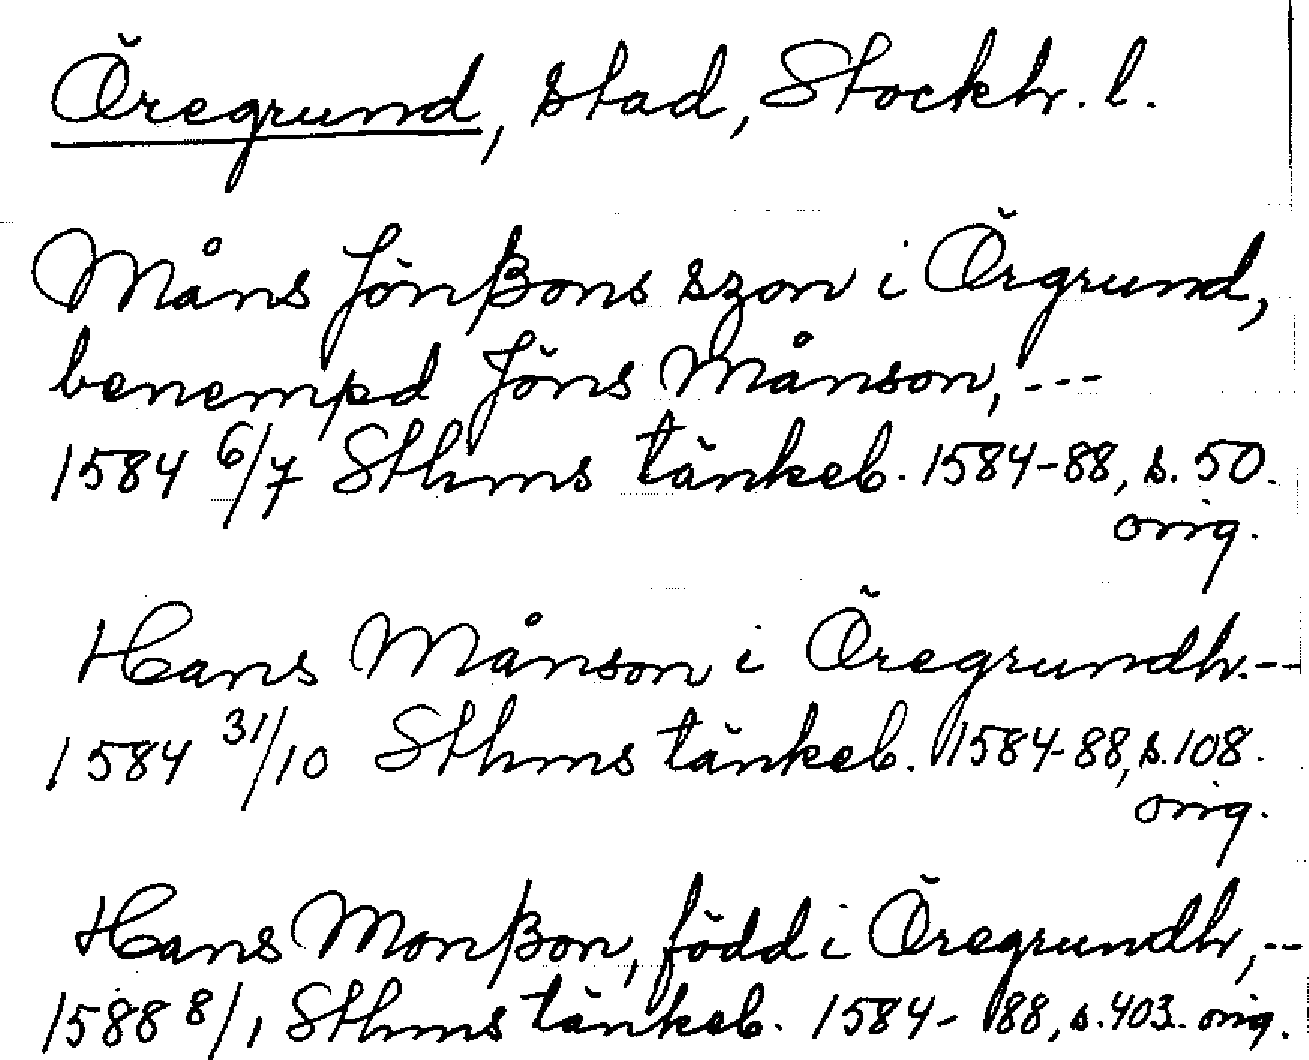 Öregrund, stad, Stockh. l.
Måns Jönßons szon i Örgrund,
benempd Jöns Månson, ---
1584 6/7 Sthms tänkeb. 1584-88, s. 50.
orig.
Hans Månson i Öregrundh. --
1584 31/10 Sthms tänkeb. 1584-88, s. 108.
orig.
Hans Monßon, född i Öregrundh, --
1588 8/1 Sthms tänkeb. 1584-88, s. 403. orig.